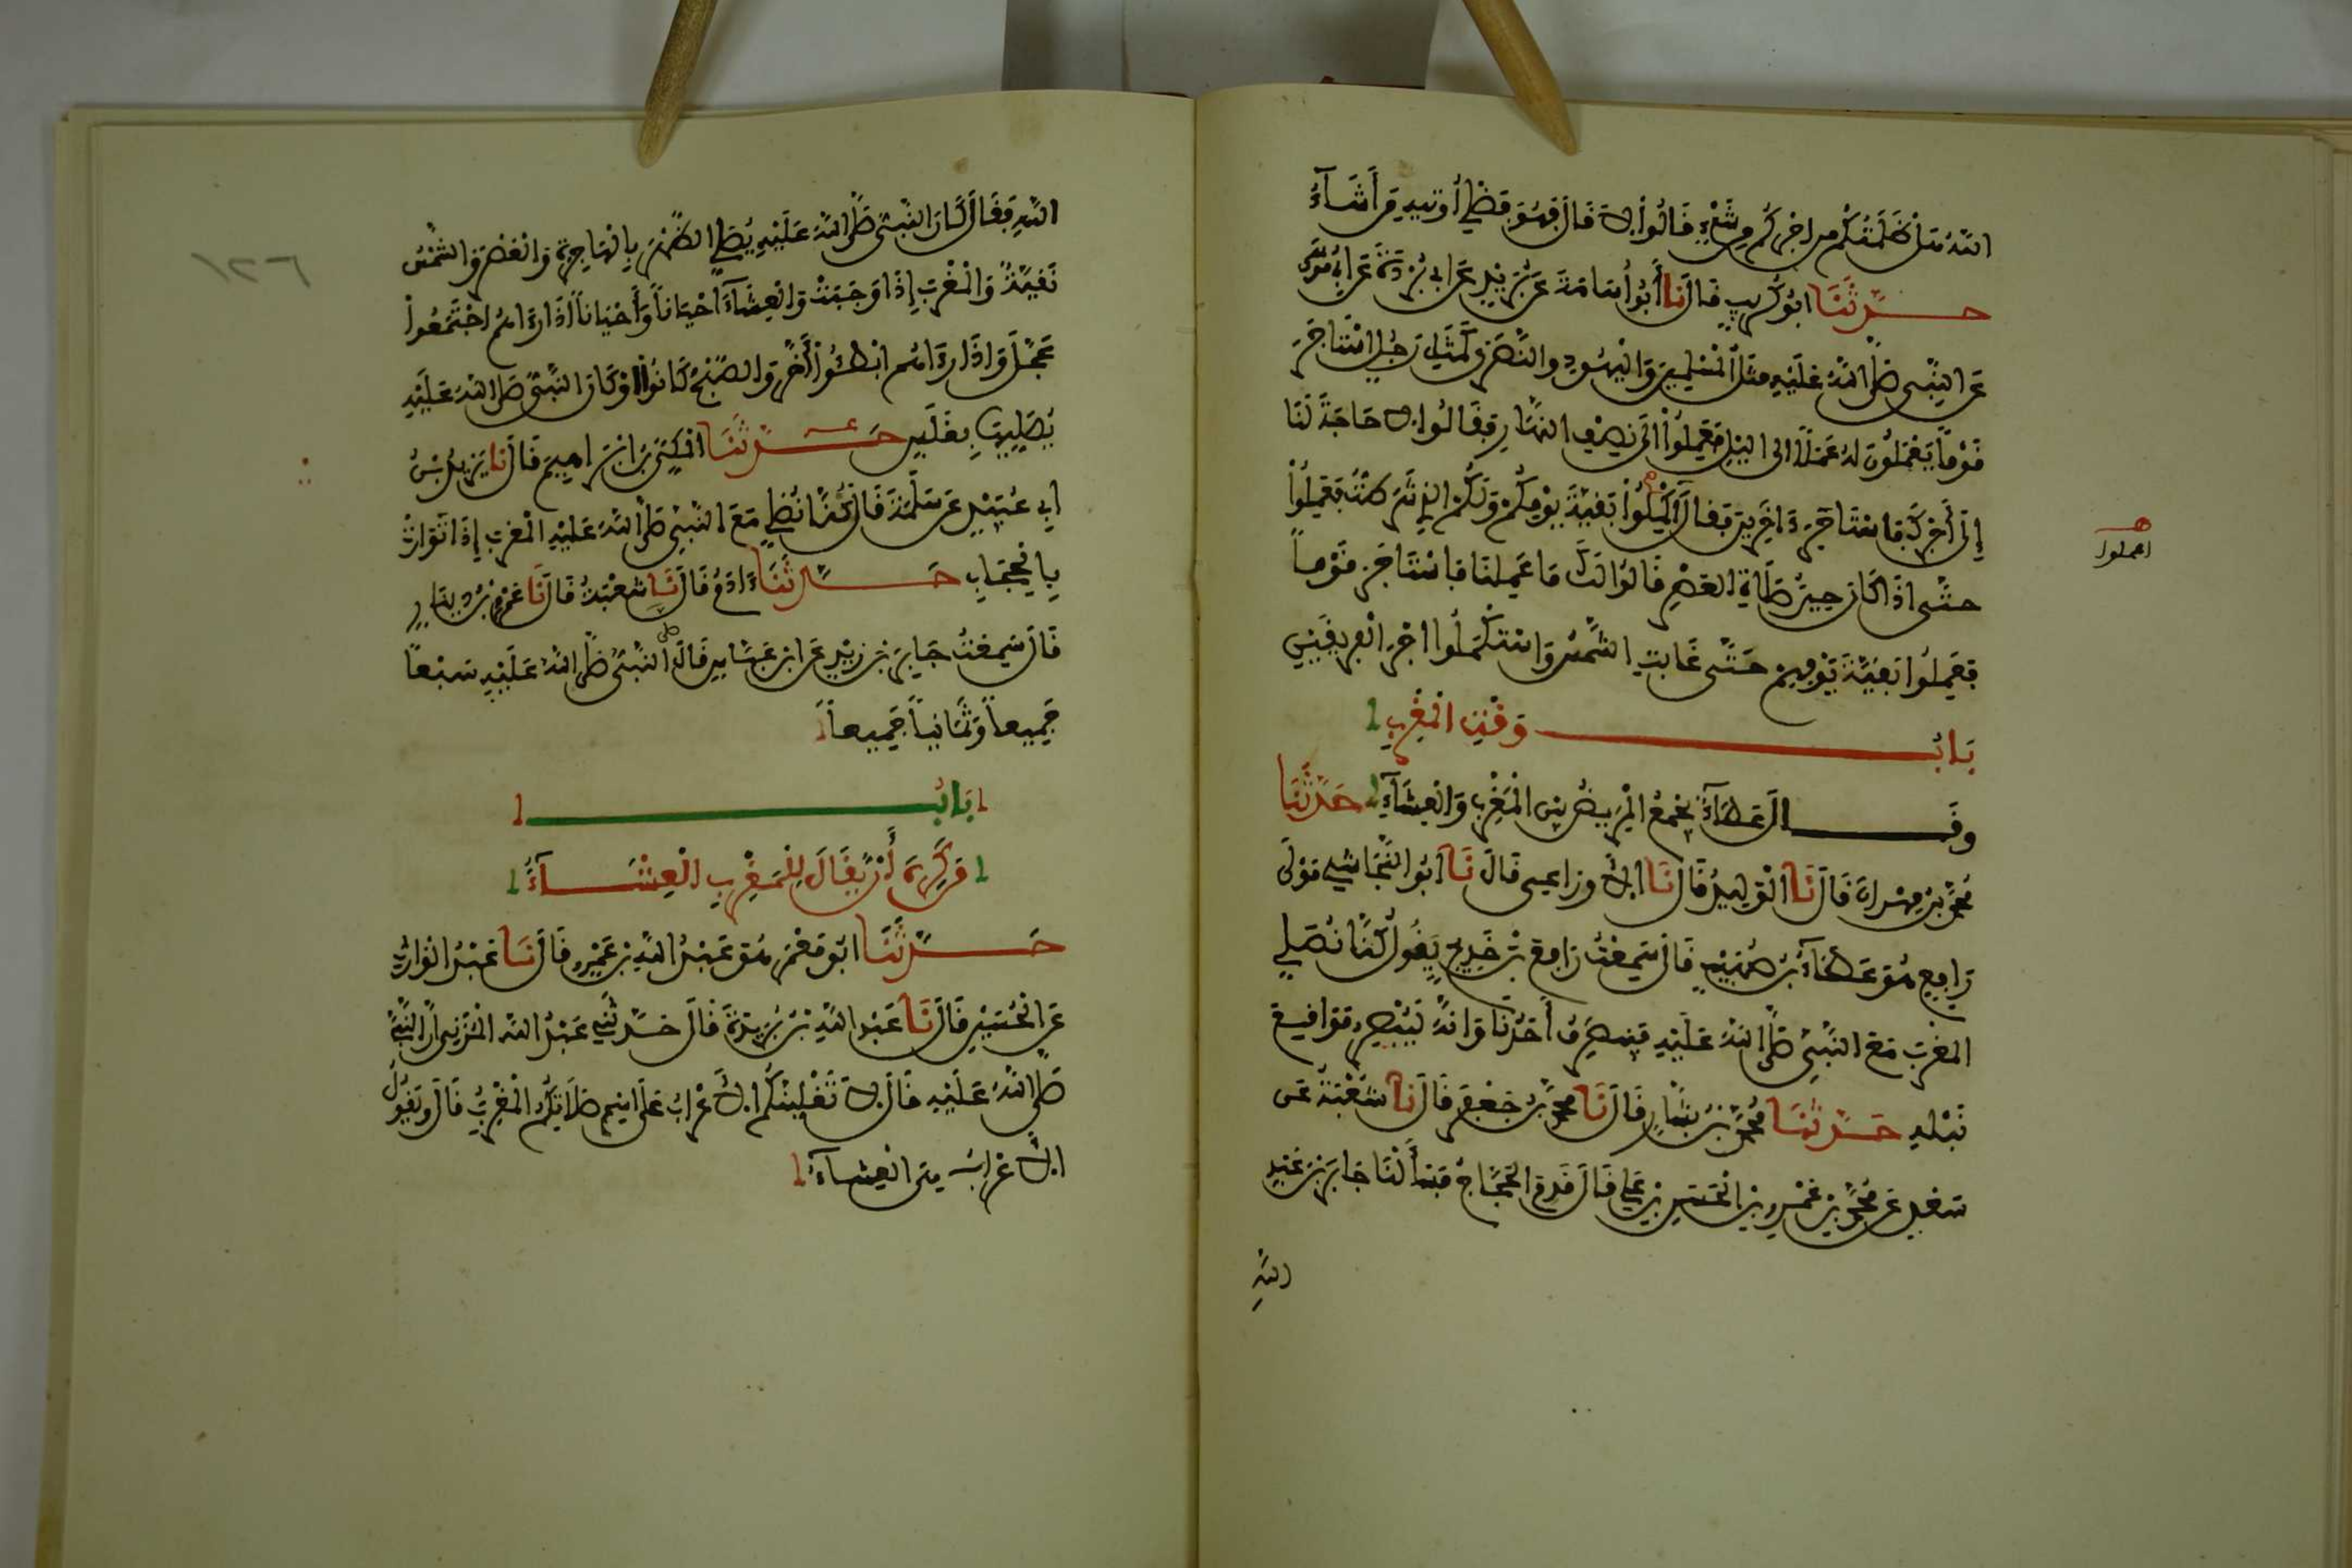 اللَّهُ هَلْ ظَلَمْتُكُمْ من اجْرِكُم مِن شَيْءٍ قَالُوا لا قَالَ فَهُوَ فَضْلِي أُوتِيهِ مَن أَشَآءُ
حَدَّثَنَا ابُو كُرَيْبٍ قَالَ نَا أَبُو أُسَامَةَ عَن بُرَيْدٍ عَن ابِي بُرْدَةَ عَن ابِي مُوسَى
عَنِ النَّبِيِّ صَلَّى اللَّهُ عَلَيْهِ مَثَلُ الْمُسْلِمِينَ وَالْيَهُودِ والنَّصَرَى كَمَثَلِ رَجُلٍ اسْتَاجَرَ
قَوْماً يَعْمَلُونَ لَهُ عَمَلاً الى اليْلِ فَعَمِلُواْ الَى نِصْفِ النَّهَارِ فَقَالُوا لا حَاجَةَ لَنَا
إِلَى أَجْرِكَ فَاسْتَاجَرَ ءَاخَرِينَ فَقَالَ أَكْمِلُواْ بَقِيَّةَ يَوْمِكُمْ وَلَكُمُ الذِي شَرَطْتُ فَعَمِلُواْ
اعملوا
حتَّى اذَا كَانَ حِينُ صَلَاةِ العَصْرِ قَالُوا لَكَ مَا عَمِلْنَا فَاسْتَاجَرَ قَوْماً
فَعَمِلُوا بَقِيَّةَ يَوْمِهِمْ حَتَّى غَابَتِ الشَّمْسُ وَاسْتَكْمَلُوا اجْرَ الْفَرِيقَيْنِ
بَابُ وَقْتِ الْمَغْرِبِ
وقَالَ عَطَآءٌ يَجْمَعُ الْمَرِيضُ بين الْمَغْرِبِ وَالْعِشَآءِ حَدَّثَنَا
مُحَمَّدُ بْنُ مِهْرَانَ قَالَ نَا الْوَلِيدُ قَالَ نَا الأوزاعِي قَالَ نَا أَبُو النَّجَاشِي مَوْلَى
رَافِعٍ هُوَ عَطَآءُ بْنُ صُهَيْبٍ قَالَ سَمِعْتُ رَافِعَ بْنَ خَدِيجٍ يَقُولُ كُنَّا نُصَلِّي
المغْرِبَ مَعَ النَّبِيِّ صَلَّى اللَّهُ عَلَيْهِ فَيَنصَرِفُ أَحَدُنَا وَانَّهُ لَيُبْصِرُ مَوَاقِعَ
نَبْلِهِ حَدَّثَنَا مُحَمَّدُ بْنُ بَشَّارٍ قَالَ نَا مُحَمَّدُ بْنُ جَعْفَرٍ قَالَ نَا شُعْبَةُ عَن
سَعْدٍ عَن مُحَمَّدِ بْنِ عَمْرِو بْنِ الْحَسَنِ بْنِ عَلِيٍّ قَالَ قَدِمَ الْحَجَّاجُ فَسَأَلْنَا جَابِرَ بْنَ عَبْدِ
اللَّهِ
١٢٦
اللَّهِ فَقَالَ كَانَ النَّبِيُّ صَلَّى اللَّهُ عَلَيْهِ يُصَلِّي الظُّهْرَ بِالْهَاجِرَةِ وَالْعَصْرَ وَالشَّمْسُ
نَقِيَّةٌ وَالْمَغْرِبَ إِذَا وَجَبَتْ وَالْعِشَآءَ احْيَاناً وَأَحْيَاناً اذَا رَءَاهُمُ اجْتَمَعُواْ
عَجَّلَ وَاذَا رَءَاهُم ابْطَئُواْ أَخَّرَ والصُّبْحَ كَانُوا اوْ كَانَ النَّبِيُّ صَلَّى اللَّهُ عَلَيْهِ
يُصَلِّيهَا بِغَلَسٍ حَدَّثَنَا الْمَكِّيُّ بْنُ ابْرَاهِيمَ قَالَ نَا يَزِيدُ بْنُ
ابِي عُبَيْدٍ عَن سَلَمَةَ قَالَ كُنَّا نُصَلِّي مَعَ النَّبِيِّ صَلَّى اللَّهُ عَلَيْهِ الْمَغْرِبَ إِذَا تَوَارَتْ
بِالْحِجَابِ حَدَّثَنَا ءَادَمُ قَالَ نَا شُعْبَةُ قَالَ نَا عَمْرُو بْنُ دِينَارٍ
قَالَ سَمِعْتُ جَابِرَ بْنَ زَيْدٍ عَن ابْنِ عَبَّاسٍ قَالَ صَلَّى النَّبِيُّ صَلَّى اللَّهُ عَلَيْهِ سَبْعاً
جَمِيعاً وَثَمَانِياً جَمِيعاً
بَابُ
مَن كَرِهَ أَنْ يُقَالَ لِلْمَغْرِبِ الْعِشَآءُ
حَدَّثَنَا ابُو مَعْمَرٍ هُوَ عَبْدُ اللَّهِ بْنُ عَمْرٍو قَالَ نَا عَبْدُ الْوَارِثِ
عَنِ الْحُسَيْنِ قَالَ نَا عَبْدُ اللَّهِ بْنُ بُرَيْدَةَ قَالَ حَدَّثَنِي عَبْدُ اللَّهِ الْمُزَنِي أَنَّ النَّبِيَّ
صَلَّى اللَّهُ عَلَيْهِ قَالَ لا تَغْلِبَنَّكُمُ الأَعْرَابُ عَلَى اسْمِ صَلَاتِكُمُ الْمَغْرِبِ قَالَ وتَقُولُ
الأَعْرَابُ هِيَ الْعِشَآءُ